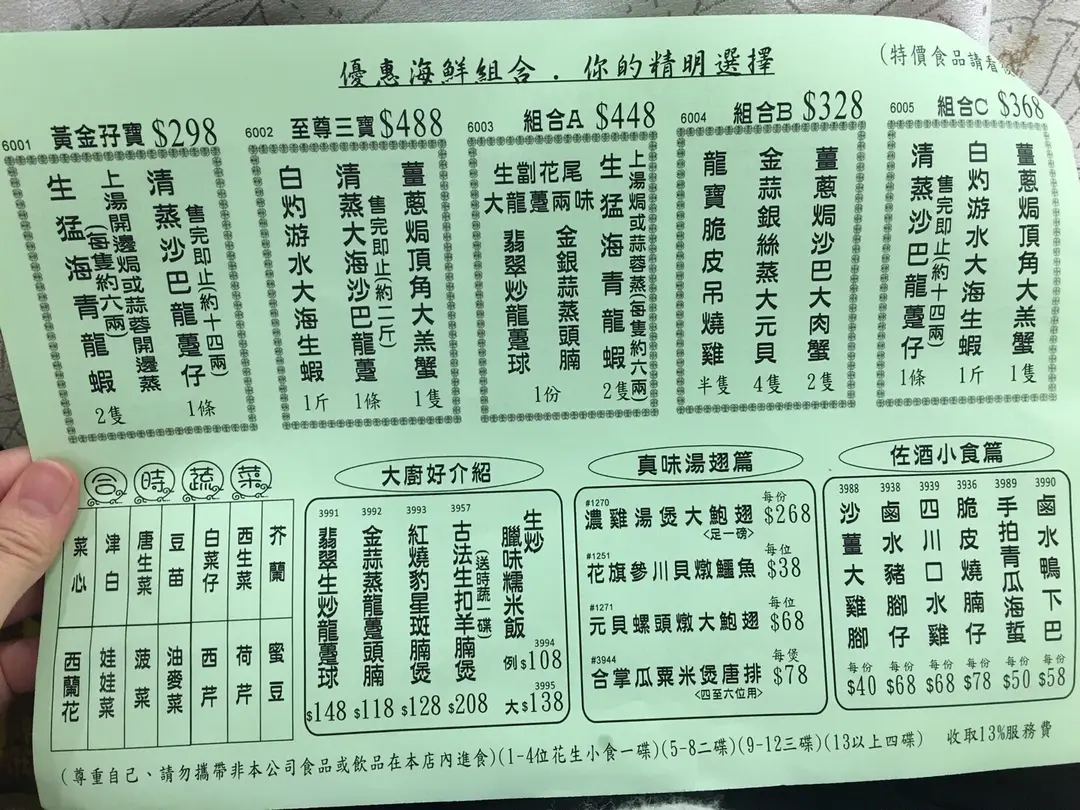 優惠海鮮組合．你的精明選擇
(特價食品請看
6001 黃金孖寶 $298
清蒸沙巴龍躉仔 1條
售完即止(約十四兩)
上湯開邊焗或蒜蓉開邊蒸
(每隻約六兩)
生猛海青龍蝦 2隻
6002 至尊三寶 $488
薑蔥焗頂角大羔蟹 1隻
售完即止(約二斤)
清蒸大海沙巴龍躉 1條
白灼游水大海生蝦 1斤
6003 組合A $448
上湯焗或蒜蓉蒸(每隻約六兩)
生猛海青龍蝦 2隻
生劏花尾
大龍躉兩味
金銀蒜蒸頭腩
翡翠炒龍躉球
1份
6004 組合B $328
薑蔥焗沙巴大肉蟹 2隻
金蒜銀絲蒸大元貝 4隻
龍寶脆皮吊燒雞 半隻
6005 組合C $368
薑蔥焗頂角大羔蟹 1隻
白灼游水大海生蝦 1斤
售完即止(約十四兩)
清蒸沙巴龍躉仔 1條
合時蔬菜
菜心 津白 唐生菜 豆苗 白菜仔 西生菜 芥蘭
西蘭花 娃娃菜 菠菜 油麥菜 西芹 荷芹 蜜豆
大廚好介紹
生炒
臘味糯米飯
3994
例$108
3995
大$138
3957 古法生扣羊腩煲 $208
(送時蔬一碟)
3993 紅燒豹星斑腩煲 $128
3992 金蒜蒸龍躉頭腩 $118
3991 翡翠生炒龍躉球 $148
真味湯翅篇
#1270 濃雞湯煲大鮑翅 每份 $268
<足一磅>
#1251 花旗參川貝燉鱷魚 每位 $38
#1271 元貝螺頭燉大鮑翅 每位 $68
#3944 合掌瓜粟米煲唐排 每煲 $78
<四至六位用>
佐酒小食篇
3990 鹵水鴨下巴 每份 $58
3989 手拍青瓜海蜇 每份 $50
3936 脆皮燒腩仔 每份 $78
3939 四川口水雞 每份 $68
3938 鹵水豬腳仔 每份 $68
3988 沙薑大雞腳 每份 $40
(尊重自己、請勿攜帶非本公司食品或飲品在本店內進食)(1-4位花生小食一碟)(5-8二碟)(9-12三碟)(13以上四碟) 收取13%服務費